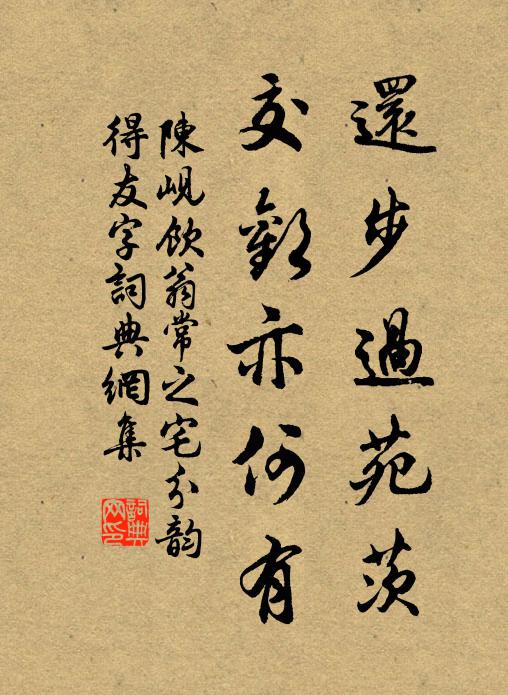 還步過苑茨
交歡亦何有
陳峴飲翁常之宅分韻
得友字詞典網集
詞典
网印